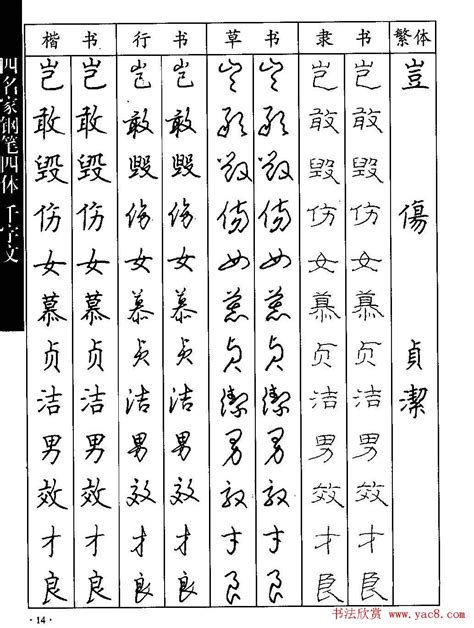 四名家钢笔四体 千字文
楷书 行书 草书 隶书 繁体
岂 岂 岂 岂 岂 岂 岂 岂 豈
敢 敢 敢 敢 敢 敢 敢 敢
毁 毁 毁 毁 毁 毁 毁 毁
伤 伤 伤 伤 傷 傷 伤 伤 傷
女 女 女 女 女 女 女 女
慕 慕 慕 慕 慕 慕 慕 慕
贞 贞 贞 贞 贞 贞 贞 贞 貞
洁 洁 洁 洁 潔 潔 洁 洁 潔
男 男 男 男 男 男 男 男
效 效 效 效 效 效 效 效
才 才 才 才 才 才 才 才
良 良 良 良 良 良 良 良
·14·
书法欣赏 www.yac8.com